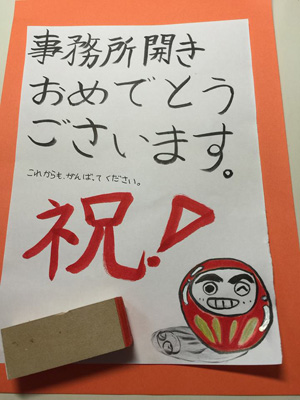 事務所開き
おめでとう
ございます。
これからも、がんばってください。
祝!